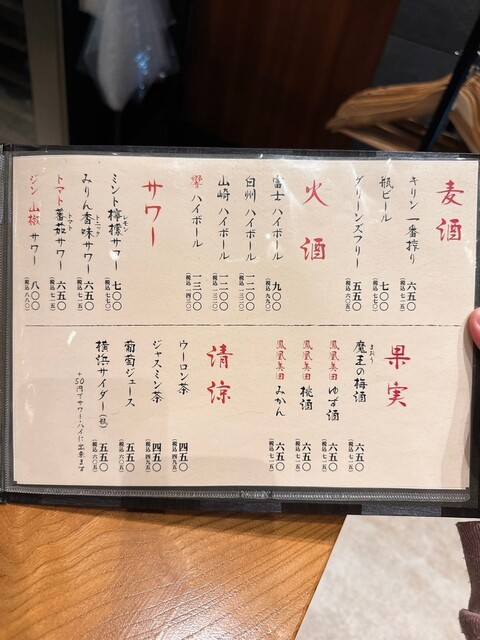 麦酒
キリン一番搾り 六五〇 (税込七一五)
瓶ビール 七〇〇 (税込七七〇)
グリーンズフリー 五五〇 (税込六〇五)
火酒
富士ハイボール 九〇〇 (税込九九〇)
白州ハイボール 一二〇〇 (税込一三二〇)
山崎ハイボール 一二〇〇 (税込一三二〇)
響ハイボール 一三〇〇 (税込一四三〇)
サワー
ミント檸檬サワー レモン 七〇〇 (税込七七〇)
みりん香味サワー 六五〇 (税込七一五)
トマト蕃茄サワー トマト 六五〇 (税込七一五)
ジン山椒サワー 八〇〇 (税込八八〇)
果実
魔王の梅酒 まおう 六五〇 (税込七一五)
鳳凰美田 ゆず酒 六五〇 (税込七一五)
鳳凰美田 桃酒 六五〇 (税込七一五)
鳳凰美田 みかん 六五〇 (税込七一五)
清涼
ウーロン茶 四五〇 (税込四九五)
ジャスミン茶 四五〇 (税込四九五)
葡萄ジュース 五五〇 (税込六〇五)
横浜サイダー(瓶) 五五〇 (税込六〇五)
+50円でサワー・ハイに出来ます